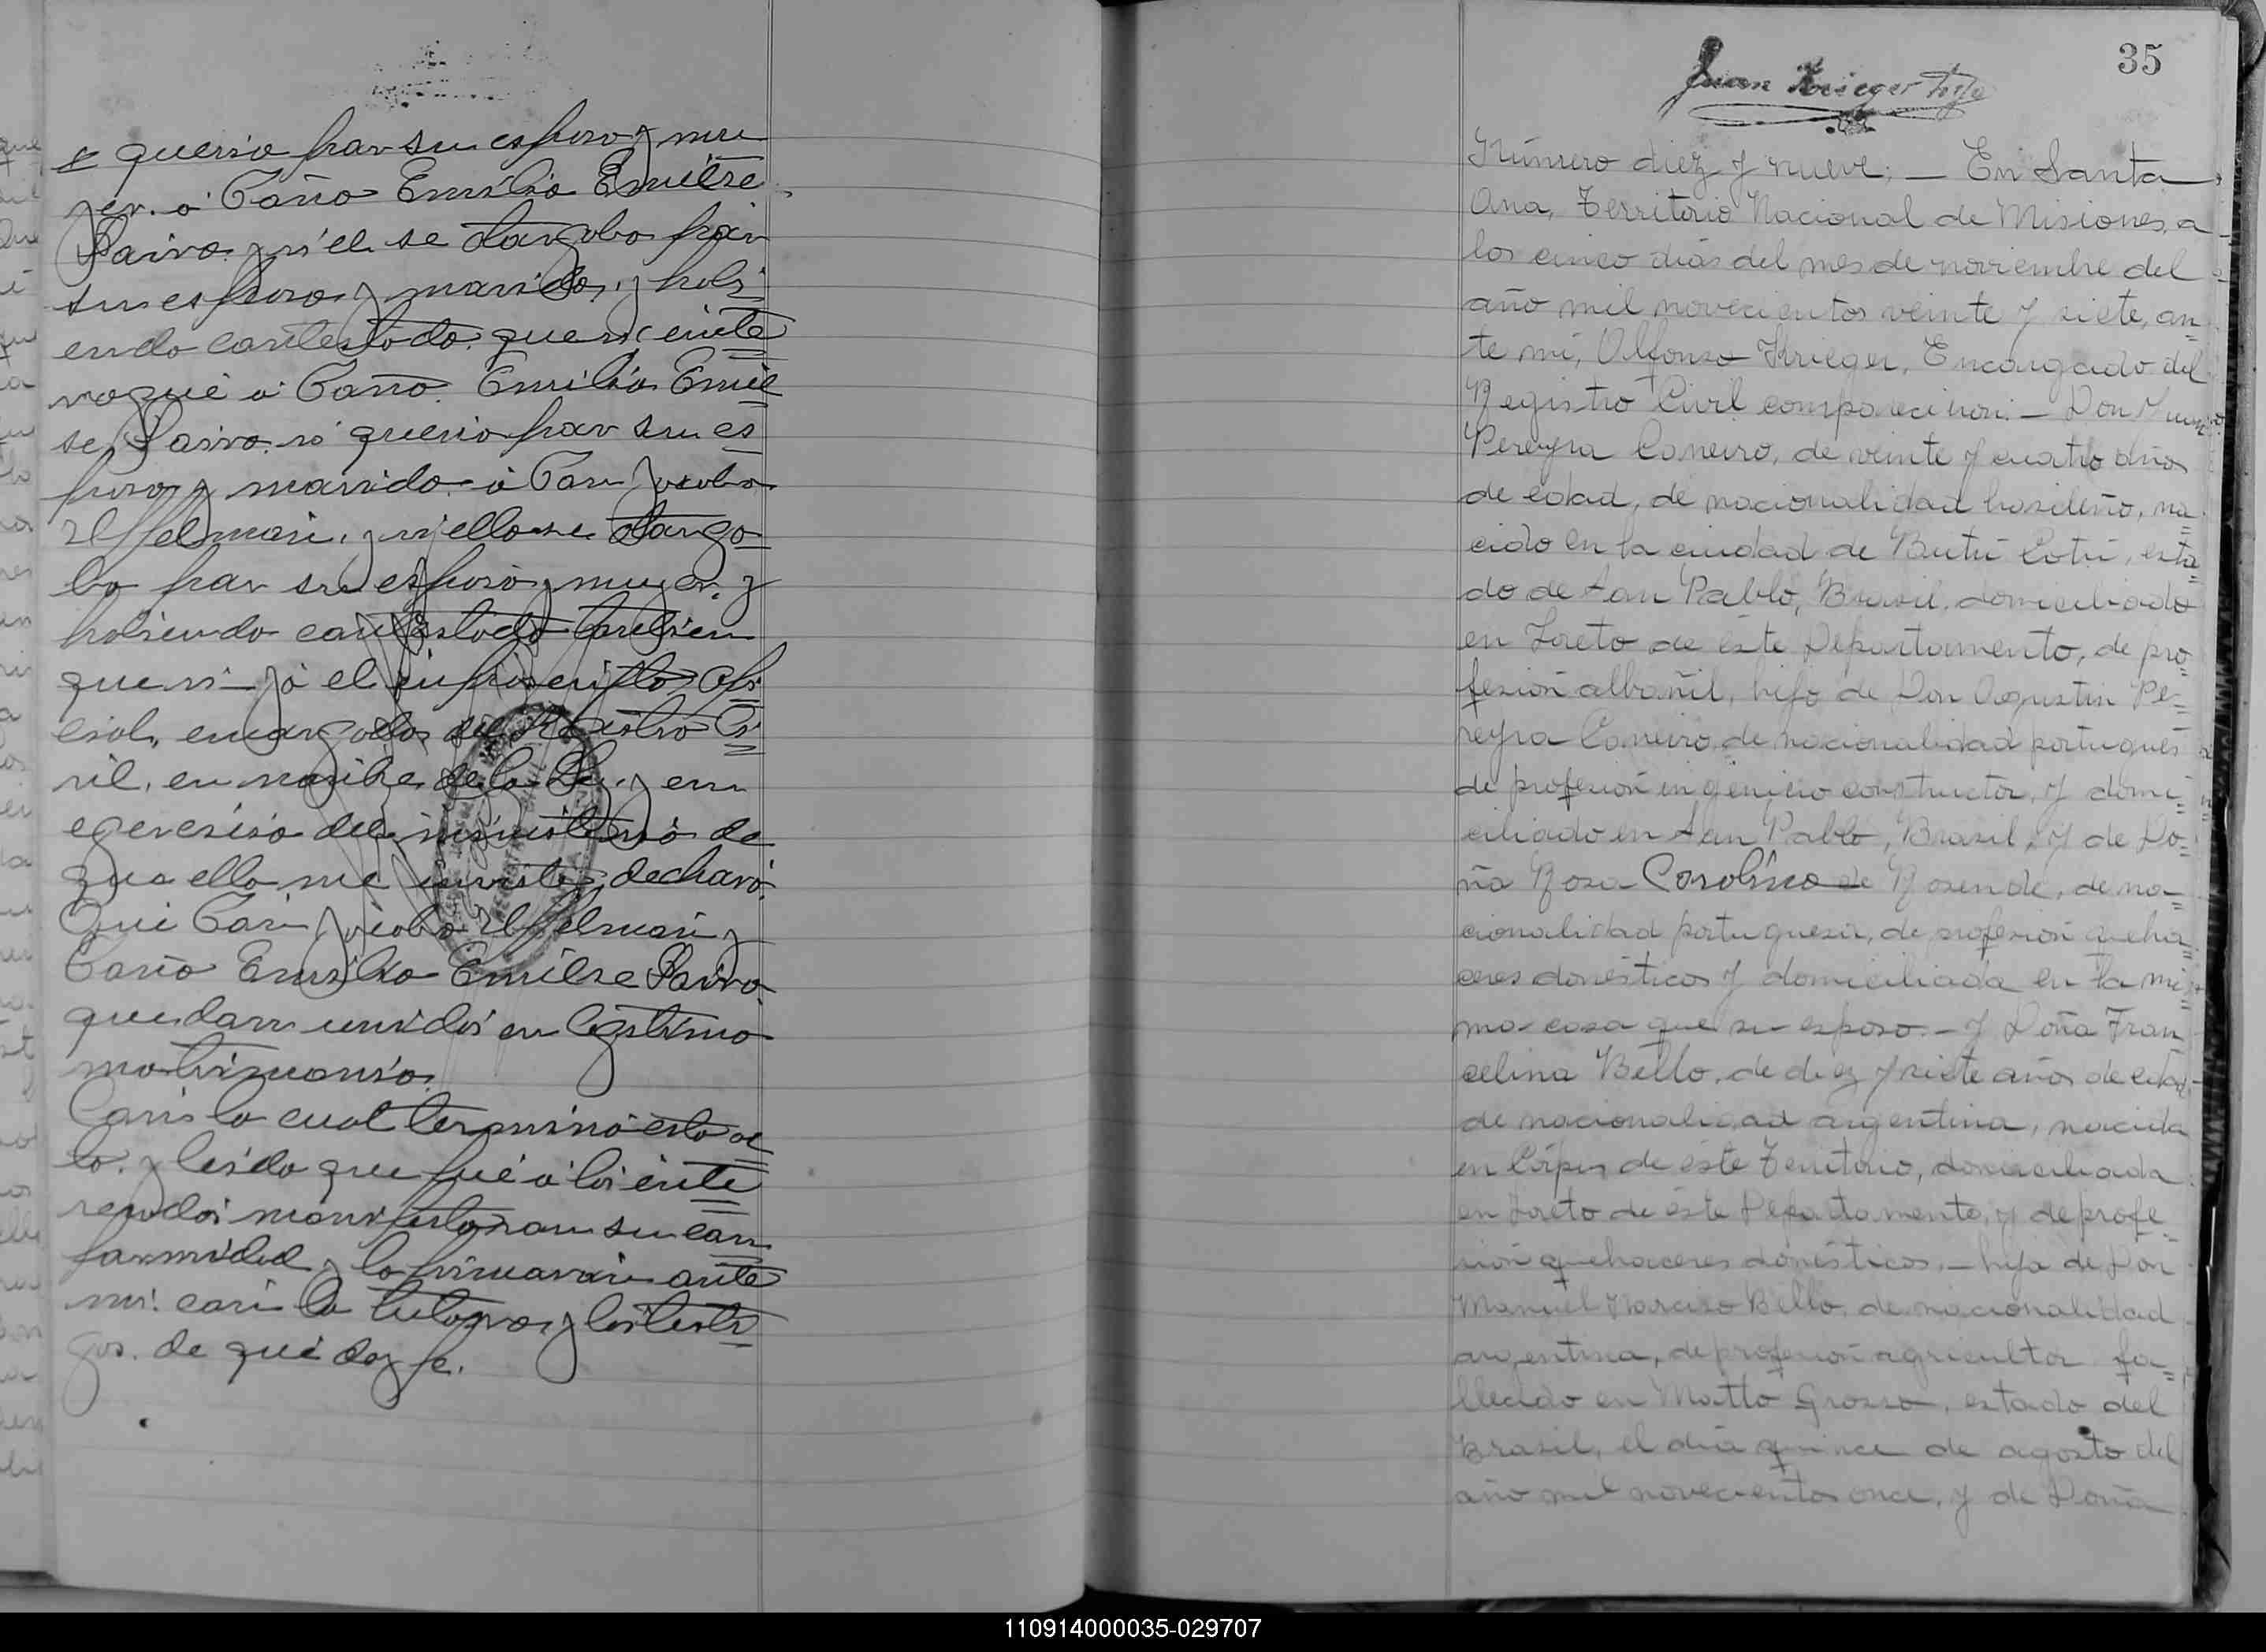 queria por su esposa y mu
jer a Doña Emilia Emilse
Paiva y si él se otorgaba por
su esposo y marido, y habi
endo contestado que si, inte
rogué a Doña Emilia Emil
se Paiva si queria por su es
poso y marido a Don Jacobo
y si ella se otorga
ba por su esposa y mujer y
habiendo contestado tambien
que si yo el infrascripto Ofi
cial, encargado del Registro Ci
vil, en nombre de la Ley y en
egercisio del ministerio de
que ella me inviste, declaro:
Que Don Jacobo y
Doña Emilia Emilse Paiva
quedan unidos en legitimo
matrimonio.
Con lo cual termino esta ac
ta y leida que fué a los inte
resados manifestaron su con
formidad y la firmaron ante
mi con la tutora y los testi
gos. de que doy fe.
35
Juan Krieger hijo
Número diez y nueve; — En Santa
Ana, Territorio Nacional de Misiones, a
los cinco dias del mes de noviembre del
año mil novecientos veinte y siete, an
te mi, Alfonso Krieger, Encargado del
Registro Civil comparecieron: — Don
Pereyra Coneiro, de veinte y cuatro años
de edad, de nacionalidad brasileño, na
cido en la ciudad de Butú Cotú, esta
do de San Pablo, Brasil, domiciliado
en Loreto de éste Departamento, de pro
fesión albañil, hijo de Don Agustin Pe
reyra Coneiro, de nacionalidad portugues
de profesión ingeniero constructor, y domi
ciliado en San Pablo, Brasil, y de Do
ña Rosa Carolina de Rosende, de na
cionalidad portuguesa, de profesión queha
ceres domésticos y domiciliada en la mis
ma casa que su esposo. — y Doña Fran
celina Bello, de diez y siete años de edad,
de nacionalidad argentina, nacida
en Corpus de éste Territorio, domiciliada
en Loreto de éste Departamento, y de profe
sión quehaceres domésticos, — hija de Don
Manuel Narciso Bello, de nacionalidad
argentina, de profesión agricultor fa
llecido en Matto Grosso, estado del
Brasil, el dia quince de agosto del
año mil novecientos once, y de Doña
110914000035-029707